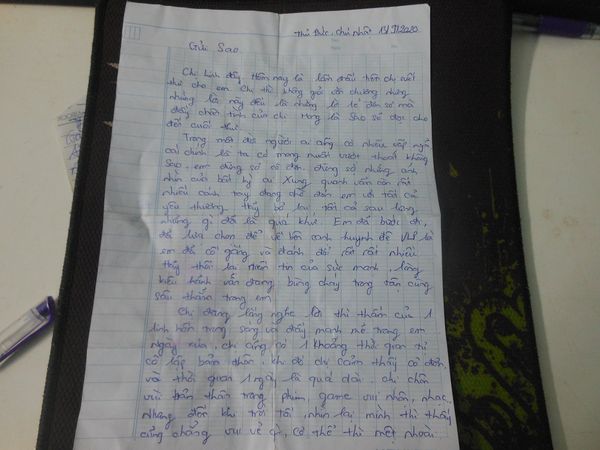 Thủ Đức, chủ nhật 13/9/2020
Gửi Sao
Chị Linh đây. Hôm nay là lần đầu tiên chị viết
thư cho em. Chị thì không giỏi văn chương nhưng
những lời này đều là những lẽ lẽ đơn sơ mà
đầy chân tình của chị. Mong là Sao sẽ đọc cho
đến cuối thư.
Trong một đời người ai cũng có nhiều vấp ngã
cái chính là ta có mong muốn vượt thoát không
Sao, em đừng sợ cô đơn, đừng sợ những ánh
nhìn của bất kỳ ai. Xung quanh vẫn còn rất
nhiều cánh tay đang chờ đón em với tất cả
yêu thương. Hãy bỏ lại tất cả sau lưng
những gì đã là quá khứ. Em đã bước đi,
đã lựa chọn để về bên cạnh huynh đệ là
em đã cố gắng và đánh đổi rất rất nhiều
thấy thời lai niềm tin của sức mạnh, lòng
kiêu hãnh vẫn đang bừng cháy trong tận cùng
sâu thẳm trong em.
Chị đang lắng nghe lời thì thầm của 1
linh hồn trong sáng và đầy mạnh mẽ trong em
Ngày xưa, chị cũng có 1 khoảng thời gian tự
cô lập bản thân, khi đó chị cảm thấy cô đơn
và thời gian 1 ngày là quá dài. Chị chôn
vùi bản thân trong phim, game vui nhộn, nhạc.
Nhưng đến khi trời tối, nhìn lại mình thì thấy
cũng chẳng vui vẻ gì, cơ thể thì mệt nhoài.